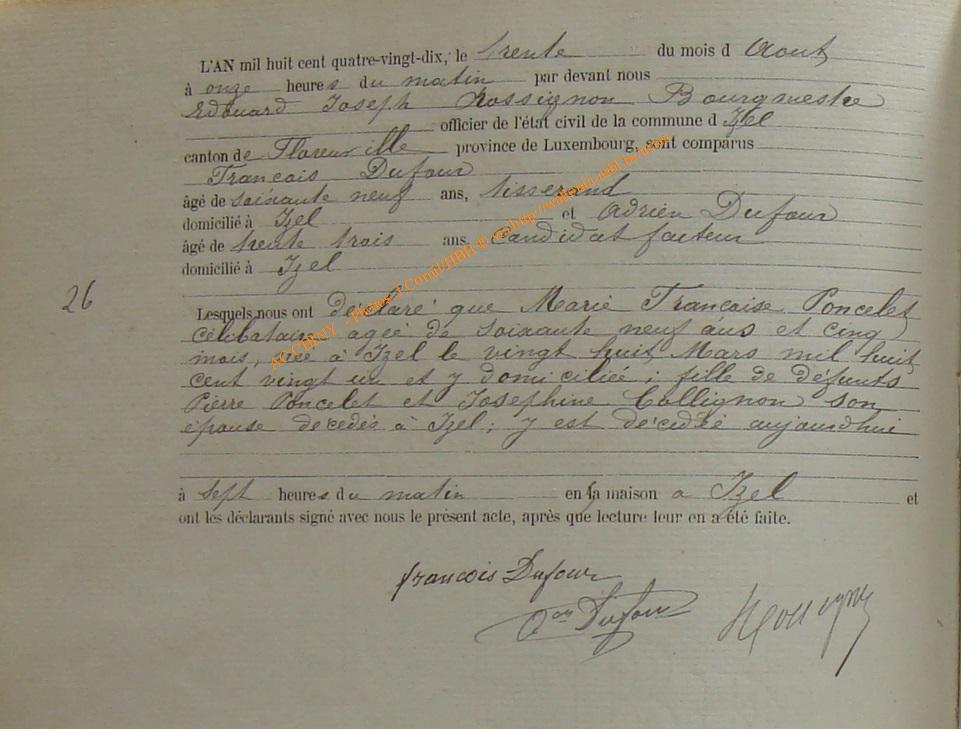 L'AN mil huit cent quatre-vingt-dix, le trente du mois d Aout
à onze heures du matin par devant nous
Edouard Joseph Rossignon Bourgmestre
officier de l'état civil de la commune d Izel
canton de Florenville province de Luxembourg, sont comparus
Francois Dufour
âgé de soixante neuf ans, tisserand
domicilié à Izel et Adrien Dufour
âgé de trente trois ans, candidat facteur
domicilié à Izel
26
Lesquels nous ont déclaré que Marie Françoise Poncelet
célibataire agée de soixante neuf ans et cinq
mois, née à Izel le vingt huit Mars mil huit
cent vingt un et y domiciliée ; fille de défunts
Pierre Poncelet et Josephine Collignon son
épouse décédés à Izel ; y est décédée aujourdhui
à sept heures du matin en sa maison a Izel et
ont les déclarants signé avec nous le présent acte, après que lecture leur en a été faite.
francois Dufour
Dufour
ACCHINY - Photos J.Cornil HBH ©